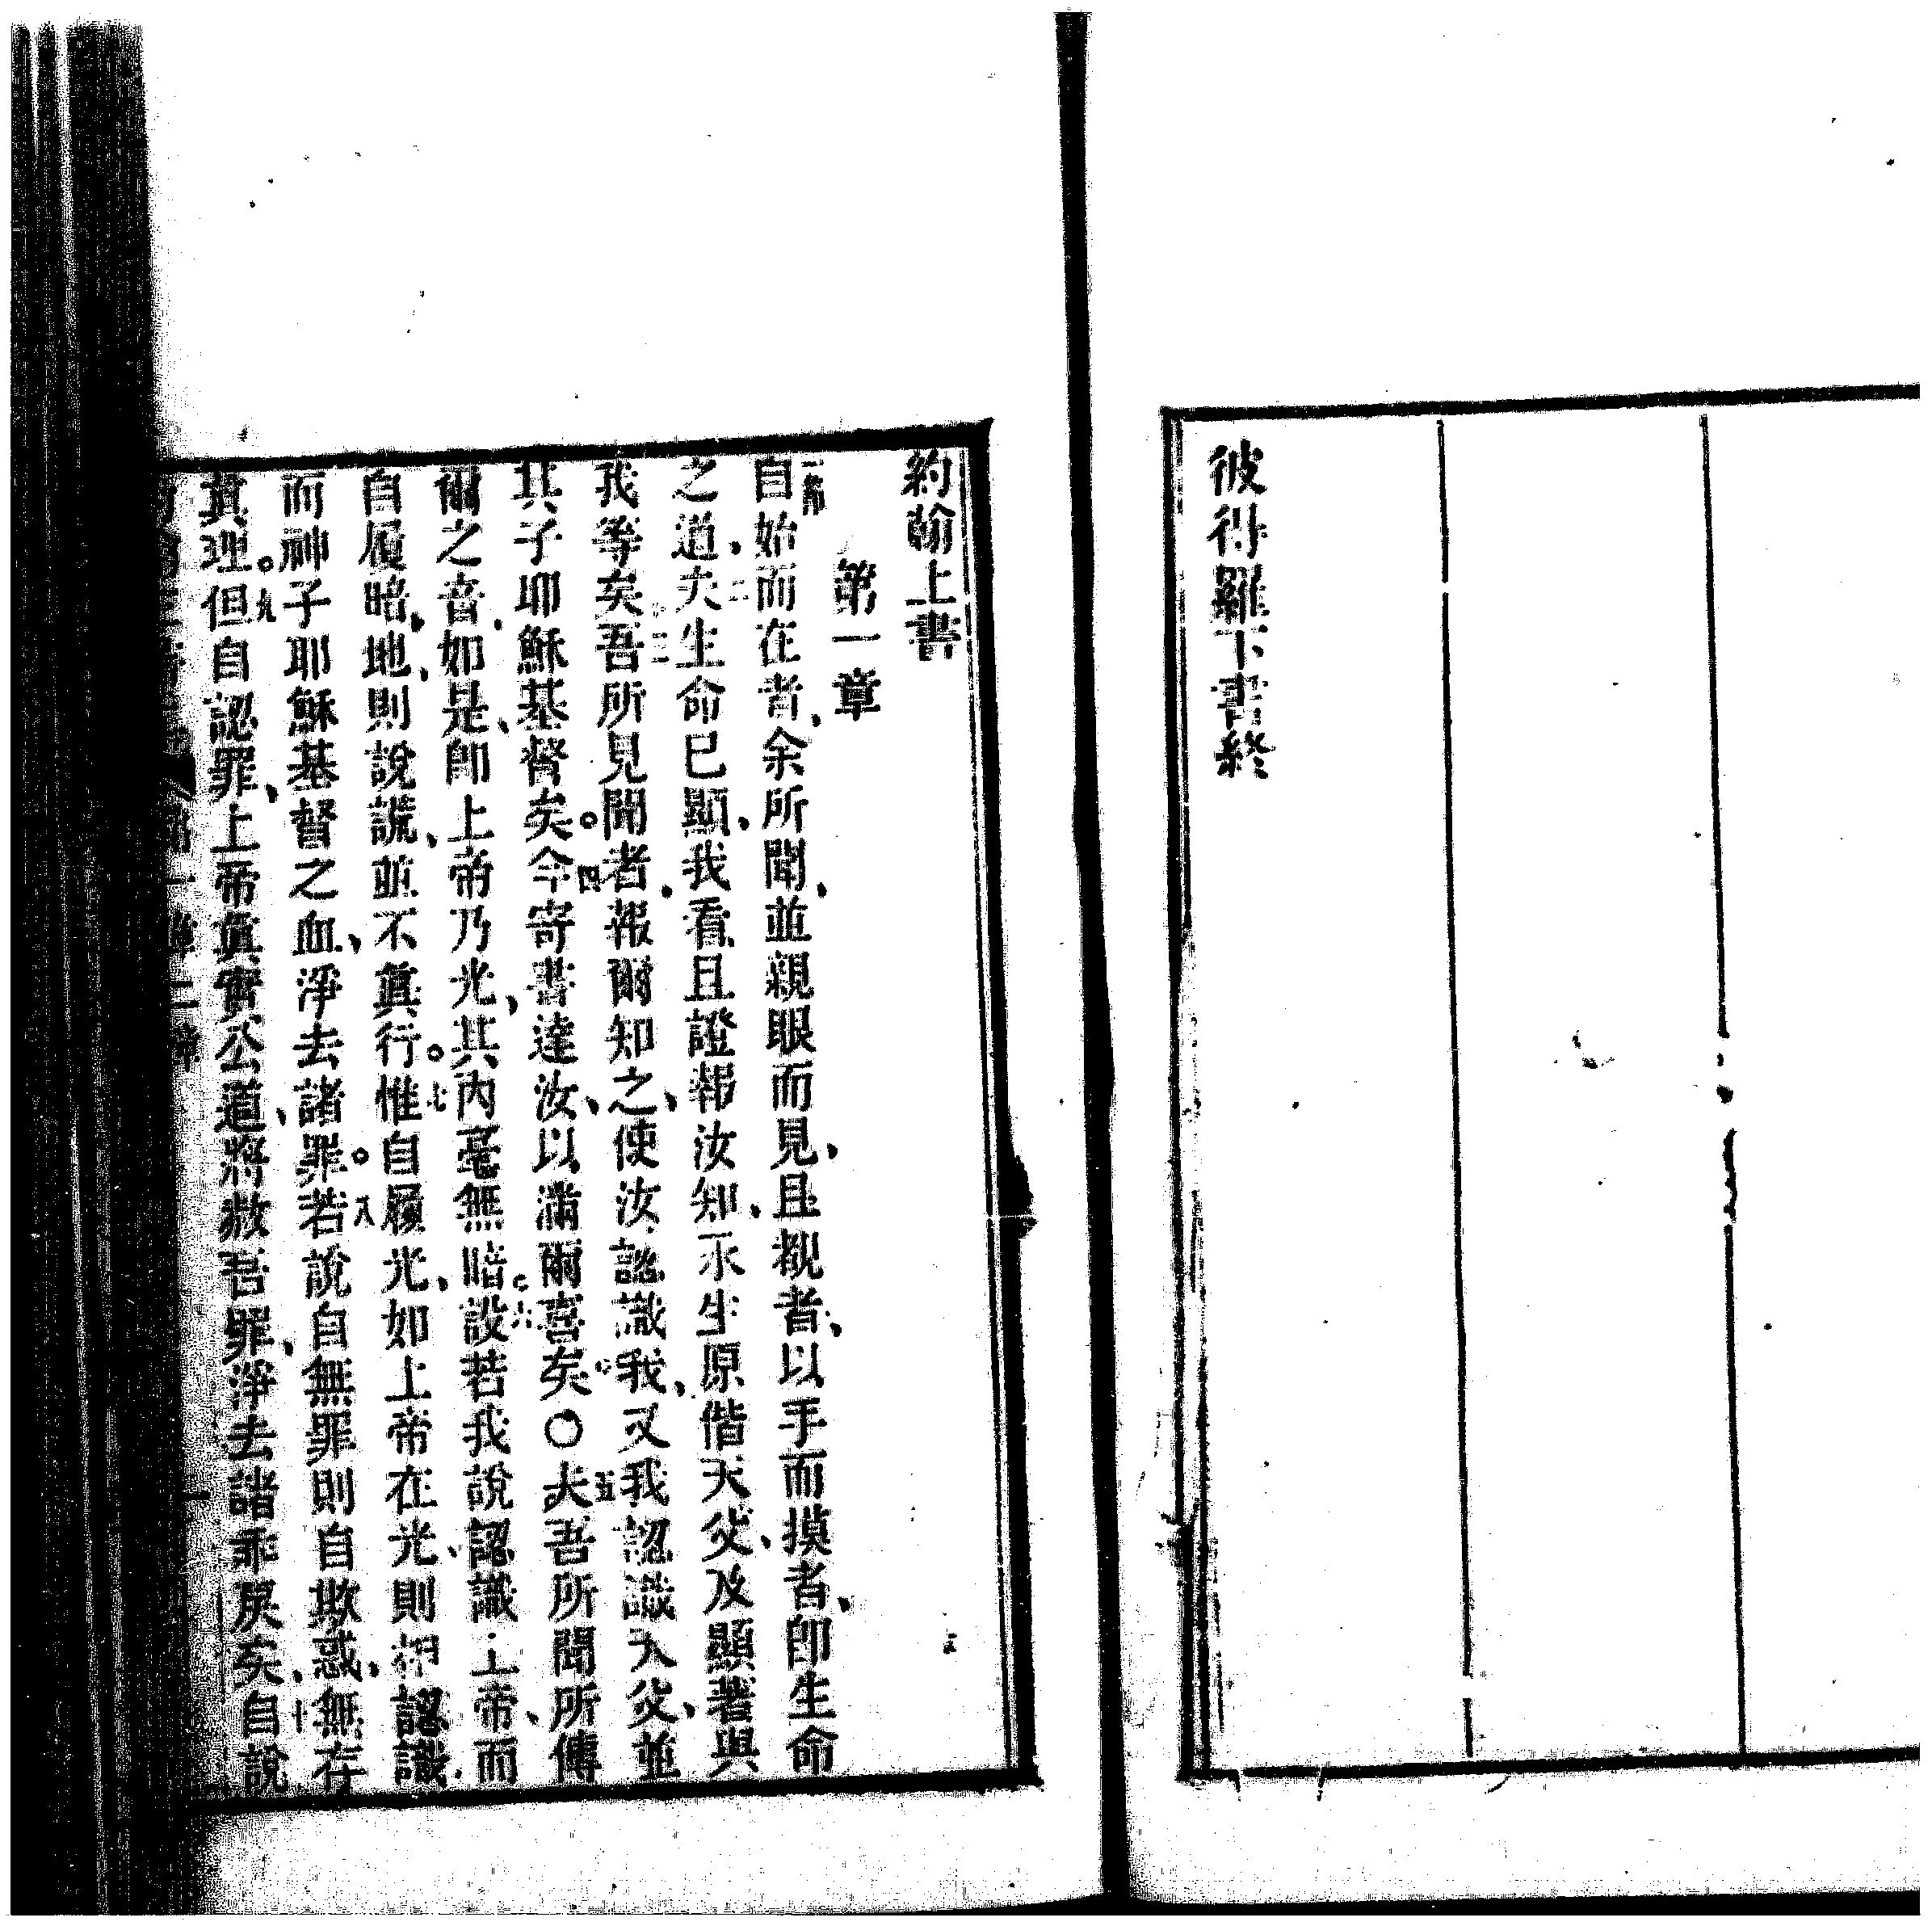 彼得羅下書終
約翰上書
第一章
一節自始而在者、余所聞、並親眼而見、且觀者、以手而摸者、卽生命
之道、二夫生命已顯、我看且證報汝知、永生原偕天父、及顯著與
我等矣。三吾所見聞者、報爾知之、使汝認識我、又我認識天父、並
其子耶穌基督矣。四今寄書達汝、以滿爾喜矣。〇五夫吾所聞所傳
爾之音、如是、卽上帝乃光、其內毫無暗。六設若我說認識上帝、而
自履暗地、則說謊、並不眞行。七惟自履光、如上帝在光、則相認識、
而神子耶穌基督之血、淨去諸罪。八若說自無罪、則自欺惑、無存
眞理。九但自認罪、上帝眞實公道、將赦吾罪、淨去諸乖戾矣、十自說